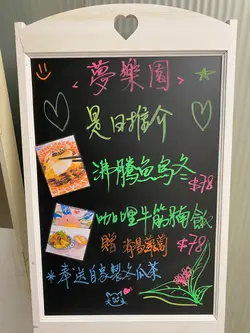 夢樂園
是日推介
沸騰魚烏冬
$78
咖哩牛筋腩飯
$78
*奉送自家製冬瓜茶